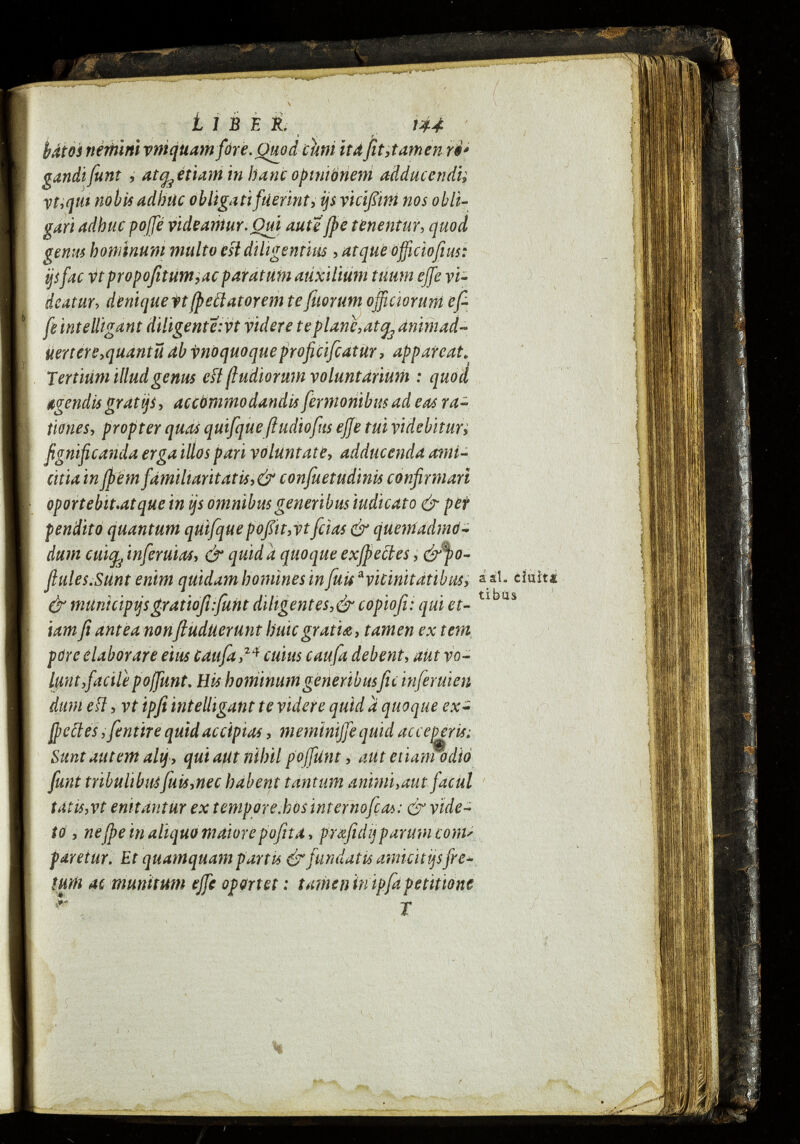 LIBER. 144
batos nemini vmquam fore. Quod cùm ita sit, tamen ro-
gandi sunt, atq; etiam in hanc opinionem adducendi,
vt, qui nobis adhuc obligati fuerint, ijs vicißim nos obli-
gari adhuc posse videamur. Qui autē spe tenentur, quod
genus hominum multo est diligentius, atque officiosius:
ijs fac vt propositum, ac paratum auxilium tuum esse vi-
deatur, denique vt spectatorem te suorum officiorum es-
se intelligant diligentē: vt videre te planè, atq; animad-
uertere, quantū ab vnoquoque proficiscatur, appareat.
Tertium illud genus est studiorum voluntarium : quod
agendis gratijs, accommodandis sermonibus ad eas ra-
tiones, propter quas quisque studiosus esse tui videbitur,
significanda erga illos pari voluntate, adducenda ami-
citia in spem familiaritatis, & consuetudinis confirmari
oportebit. atque in ijs omnibus generibus iudicato & per
pendito quantum quisque poßit, vt scias & quemadmo-
dum cuiq; inseruias, & quid à quoque exspectes, & po-
stules. Sunt enim quidam homines in suis ᵃvicinitatibus, a al. ciuita
& municipijs gratiosi: sunt diligentes, & copiosi: qui et- tibus
iam si antea non studuerunt huic gratiæ, tamen ex tem
pore elaborare eius causa,²⁴ cuius causa debent, aut vo-
lunt, facilè possunt. His hominum generibus sic inseruien
dum est, vt ipsi intelligant te videre quid à quoque ex-
spectes, sentire quid accipias, meminisse quid acceperis.
Sunt autem alij, qui aut nihil possunt, aut etiam odio
sunt tribulibus suis, nec habent tantum animi, aut facul
tatis, vt enitantur ex tempore. hos internoscas: & vide-
to, ne spe in aliquo maiore posita, præsidij parum com-
paretur. Et quamquam partis & fundatis amicitijs fre-
tum ac munitum esse oportet : tamen in ipsa petitione
T